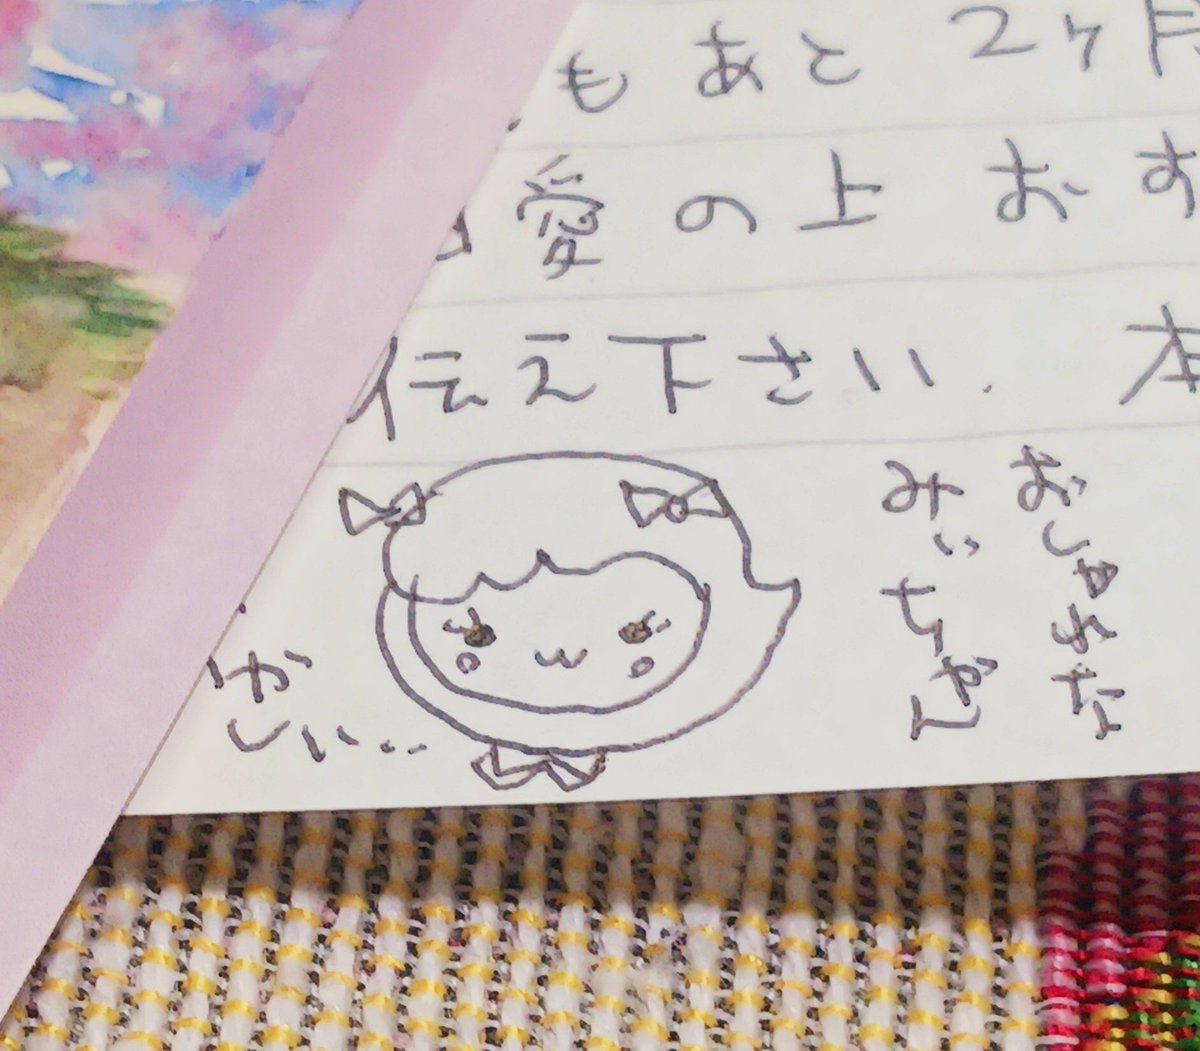 もあと 2ヶ月
愛の上 おす
伝え下さい. 本
おしゃれな
みぃちゃん
か
しい…